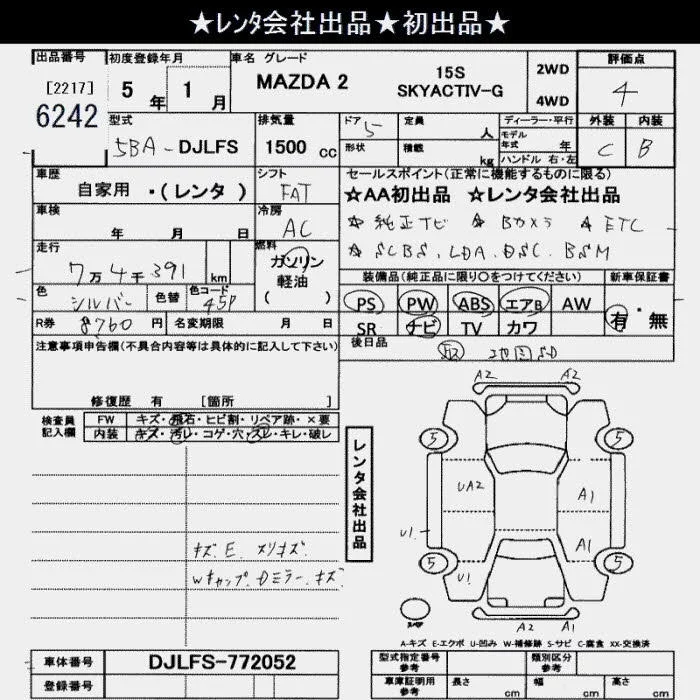 ★レンタ会社出品★初出品★
出品番号 初度登録年月 車名 グレード 評価点
[2217] 5年 1月 MAZDA 2 15S SKYACTIV-G 2WD 4WD 4
6242
型式 排気量 ドア 5 定員 人 ディーラー・平行 外装 内装
5BA-DJLFS 1500 cc 形状 積載 kg モデル年式 年 C B
ハンドル 右・左
車歴 シフト セールスポイント(正常に機能するものに限る)
自家用 ・(レンタ) FAT ☆AA初出品 ☆レンタ会社出品
車検 年 月 日 冷房 AC ☆ 純正ナビ ☆ Bカメラ ☆ ETC
走行 燃料 ☆ SCBS, LDA, DSC, BSM
7万4千391 km ガソリン 軽油 ( )
装備品(純正品に限り○をつけてください) 新車保証書
色 シルバー 色替 色コード 45P PS PW ABS エアB AW 有・無
R券 8760 円 名変期限 月 日 SR ナビ TV カワ
注意事項申告欄(不具合内容等は具体的に記入して下さい) 後日品 地図SD
修復歴 有 [箇所 ]
検査員記入欄 FW キズ・飛石・ヒビ割・リペア跡・×要
内装 キズ・汚レ・コゲ・穴・スレ・キレ・破レ
レンタ会社出品
A2 A2
5 5
UA2 A1
U1 A1
5 5
U1
A2 A1
キズ.E.
Wキャップ.Dミラー.キズ
A-キズ E-エクボ U-凹み W-補修跡 S-サビ C-腐食 XX-交換済
車体番号 DJLFS-772052 型式指定番号 参考 類別区分 参考
登録番号 車庫証明用 参考 長さ cm 幅 cm 高さ cm